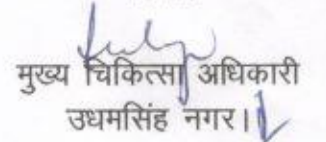 मुख्य चिकित्सा अधिकारी
उधमसिंह नगर।